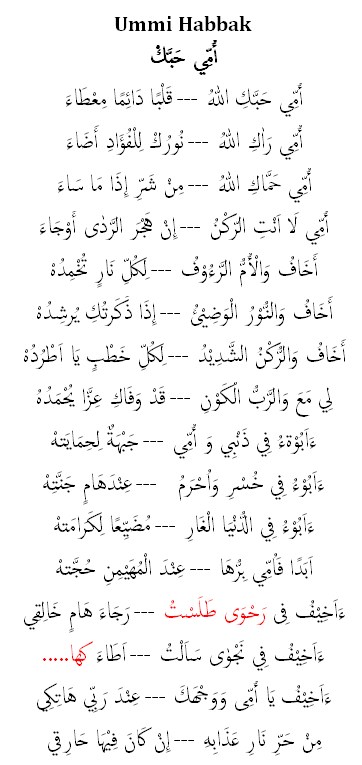 Ummi Habbak
أُمِّي حَبَّكْ
أُمِّي حَبَّكِ اللهُ --- قَلْبًا دَائِمًا مِعْطَاءَ
أُمِّي رَاٰكِ اللهُ --- نُورُكْ لِلْفُؤَادِ أَضَاءَ
أُمِّي حَمَّاكِ اللهُ --- مِنْ شَرِّ إِذَا مَا سَاءَ
أُمِّي لَا اَنْتِ الرُّكْنُ --- إِنْ هَجْرَ الرَّدٰى أَوْجَاءَ
أَخَافُ وَالْأُمُّ الرَّءُوْفُ --- لِكُلِّ نَارٍ تُخْمِدُهْ
أَخَافُ وَالنُّوْرُ الْوَضِيْئُ --- إِذَا ذَكَرتُكِ يُرشِدُهْ
أَخَافُ وَالرُّكْنُ الشَّدِيْدُ --- لِكُلِّ خَطْبٍ يَا اَطْرُدُهْ
لِي مَعَ وَالرَّبُّ الْكَوْنِ --- قَدْ وَفَاكِ عِزًّا يُحْمَدُهْ
ءَاَبُوْءُ فِي ذَنْبِي وَ أُمِّي --- جَبْهَةٌ لِحِمَايَتهْ
ءَاَبُوْءُ فِي خُسْرِ وَاَحْرَمُ --- عِنْدَهَامٍ جَنَّتِهْ
ءَاَبُوْءُ فِي الدُّنْيَا الْغَارِ --- مُضَيِّعًا لِكَرَامَتهْ
اَبَدًا فَاُمِّي بِرُّهَا --- عِنْدَ الْمُهَيْمِنِ حُجَّتهْ
ءَاَخِيْفُ فِى رَحْوَى طَلَسْتْ --- رَجَاءَ هَامٍ خَالِقِي
ءَاَخِيْفُ فِي نَجْوٰى سَاَلَتْ --- اَطَاءَ كَهَا.....
ءَاَخِيْفُ يَا أُمِّى وَوَجْهَكَ --- عِنْدَ رَبِّي هَاتِكِي
مِنْ حَرِّ نَارِ عَذَابِهِ --- إِنْ كَانَ فِيْهَا حَارِقِي